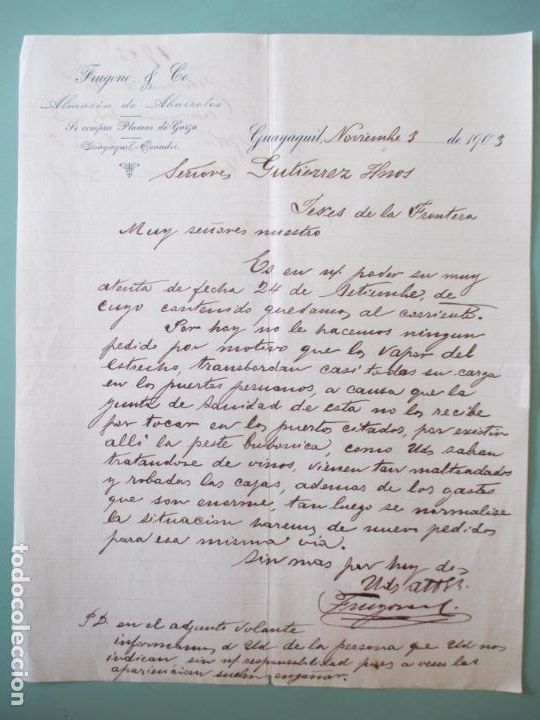 Frugone & Co
Almacén de Abarrotes
Se compra Plumas de Garza
Guayaquil-Ecuador.
Guayaquil, Noviembre 3 de 1903
Señores Gutierrez Hnos
Jexes de la Frontera
Muy señores nuestro
Es en n/ poder su muy
atenta de fecha 24 de Setiembre, de
cuyo contenido quedamos al corriente.
Por hoy no le hacemos ningun
pedido por motivo que los vapor del
estrecho, transbordan casi todas su carga
en los puertos peruanos, a causa que la
junta de sanidad de esta no los recibe
por tocar en los puertos citados, por existir
alli la peste bubonica, como Uds saban
tratandose de vinos, vienen tan maltradadas
y robadas las cajas, ademas de los gastos
que son enorme, tan luego se normalise
la situacion haremos de nuevo pedidos
para esa misma via.
Sin mas por hoy de
Uds atto SS.
Frugone C.
P.D en el adjunto volante
informamos a Ud de la persona que Ud nos
indican, sin n/ responsabilidad pues a veces las
apariencian suelen enganar.
todocoleccion